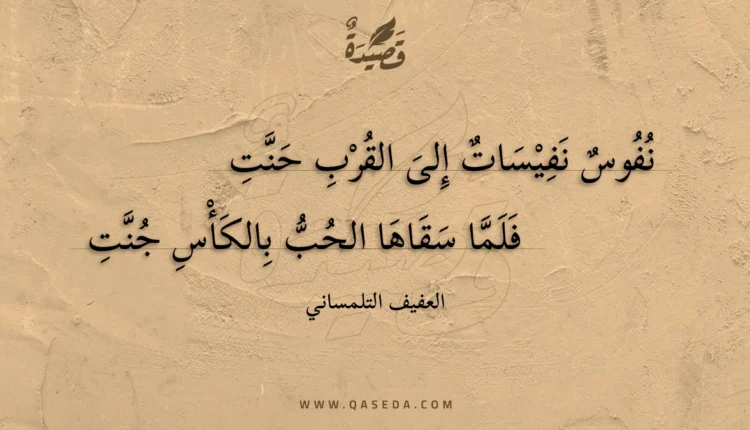 قَصِيْدَةٌ
نُفُوسٌ نَفِيْسَاتٌ إِلىَ القُرْبِ حَنَّتِ
فَلَمَّا سَقَاهَا الحُبُّ بِالكَأْسِ جُنَّتِ
العفيف التلمساني
WWW.QASEDA.COM